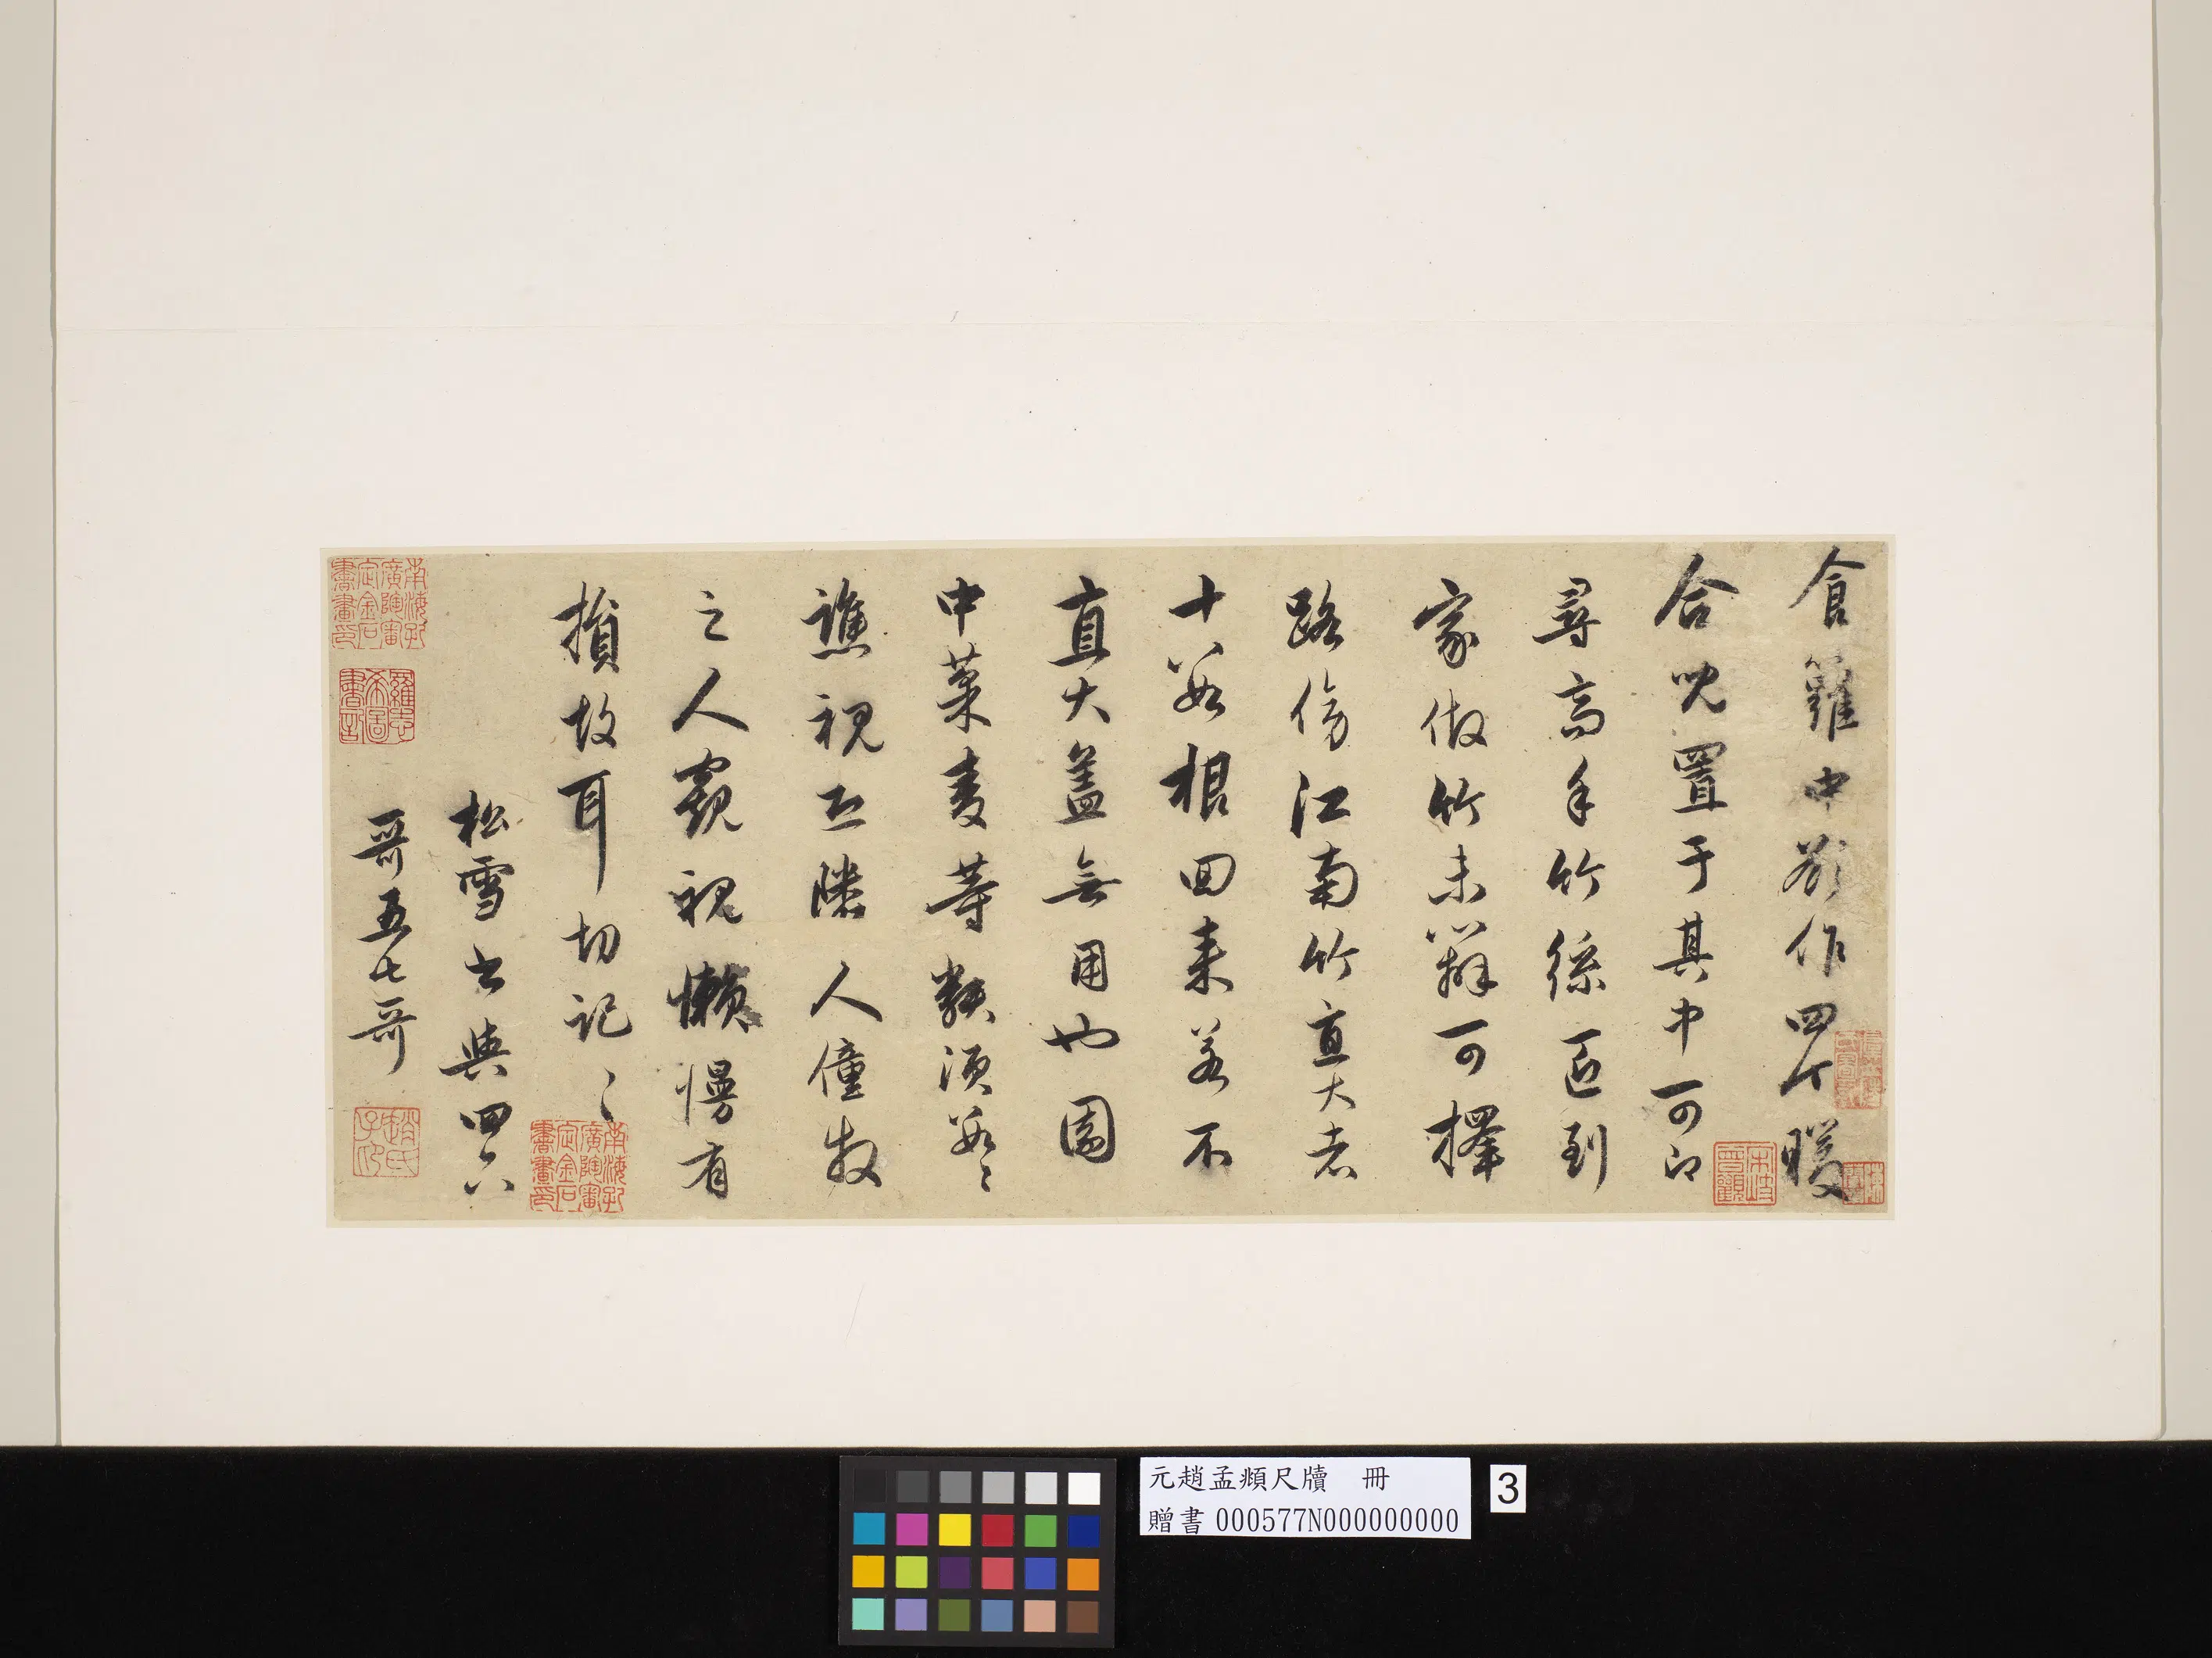 食籮中欲作四个暖
合兒置于其中可即
尋高手竹絲匠到
家做竹未辦可擇
路傍江南竹直大者
十數根回来若不
直大盖無用也園
中菜麦等類須數〻
譙視丘隴人僮牧
之人窺視懶慢有
損故耳切記〻
松雪書與四六
哥五七哥
趙氏子昂
元趙孟頫尺牘 冊
贈書 000577N000000000
3